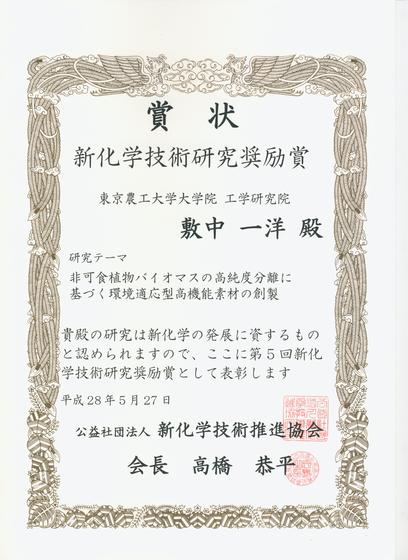 賞 状
新化学技術研究奨励賞
東京農工大学大学院 工学研究院
敷中 一洋 殿
研究テーマ
非可食植物バイオマスの高純度分離に
基づく環境適応型高機能素材の創製
貴殿の研究は新化学の発展に資するもの
と認められますので、ここに第5回新化
学技術研究奨励賞として表彰します
平成28年5月27日
公益社団法人 新化学技術推進協会
会長 高橋 恭平